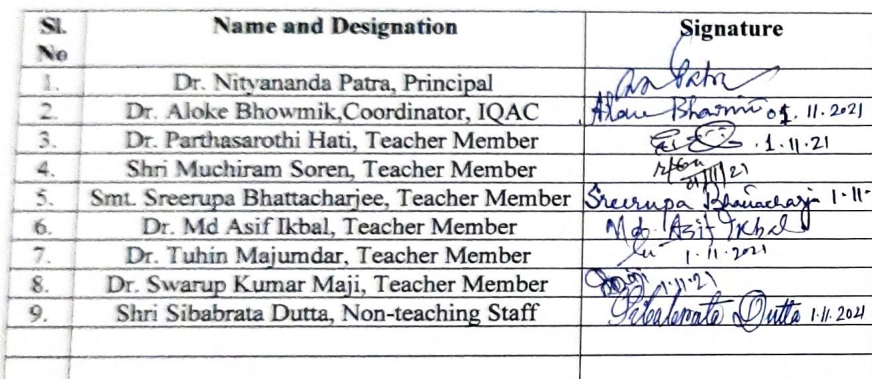 Sl. No Name and Designation Signature
1. Dr. Nityananda Patra, Principal Patra
2. Dr. Aloke Bhowmik,Coordinator, IQAC 01.11.2021
3. Dr. Parthasarothi Hati, Teacher Member 1.11.21
4. Shri Muchiram Soren, Teacher Member
5. Smt. Sreerupa Bhattacharjee, Teacher Member Sreerupa Bhattacharjee 1.11.
6. Dr. Md Asif Ikbal, Teacher Member Md. Asif Ikbal
7. Dr. Tuhin Majumdar, Teacher Member 1.11.2021
8. Dr. Swarup Kumar Maji, Teacher Member 1.11.21
9. Shri Sibabrata Dutta, Non-teaching Staff Sibabrata Dutta 1.11.2021